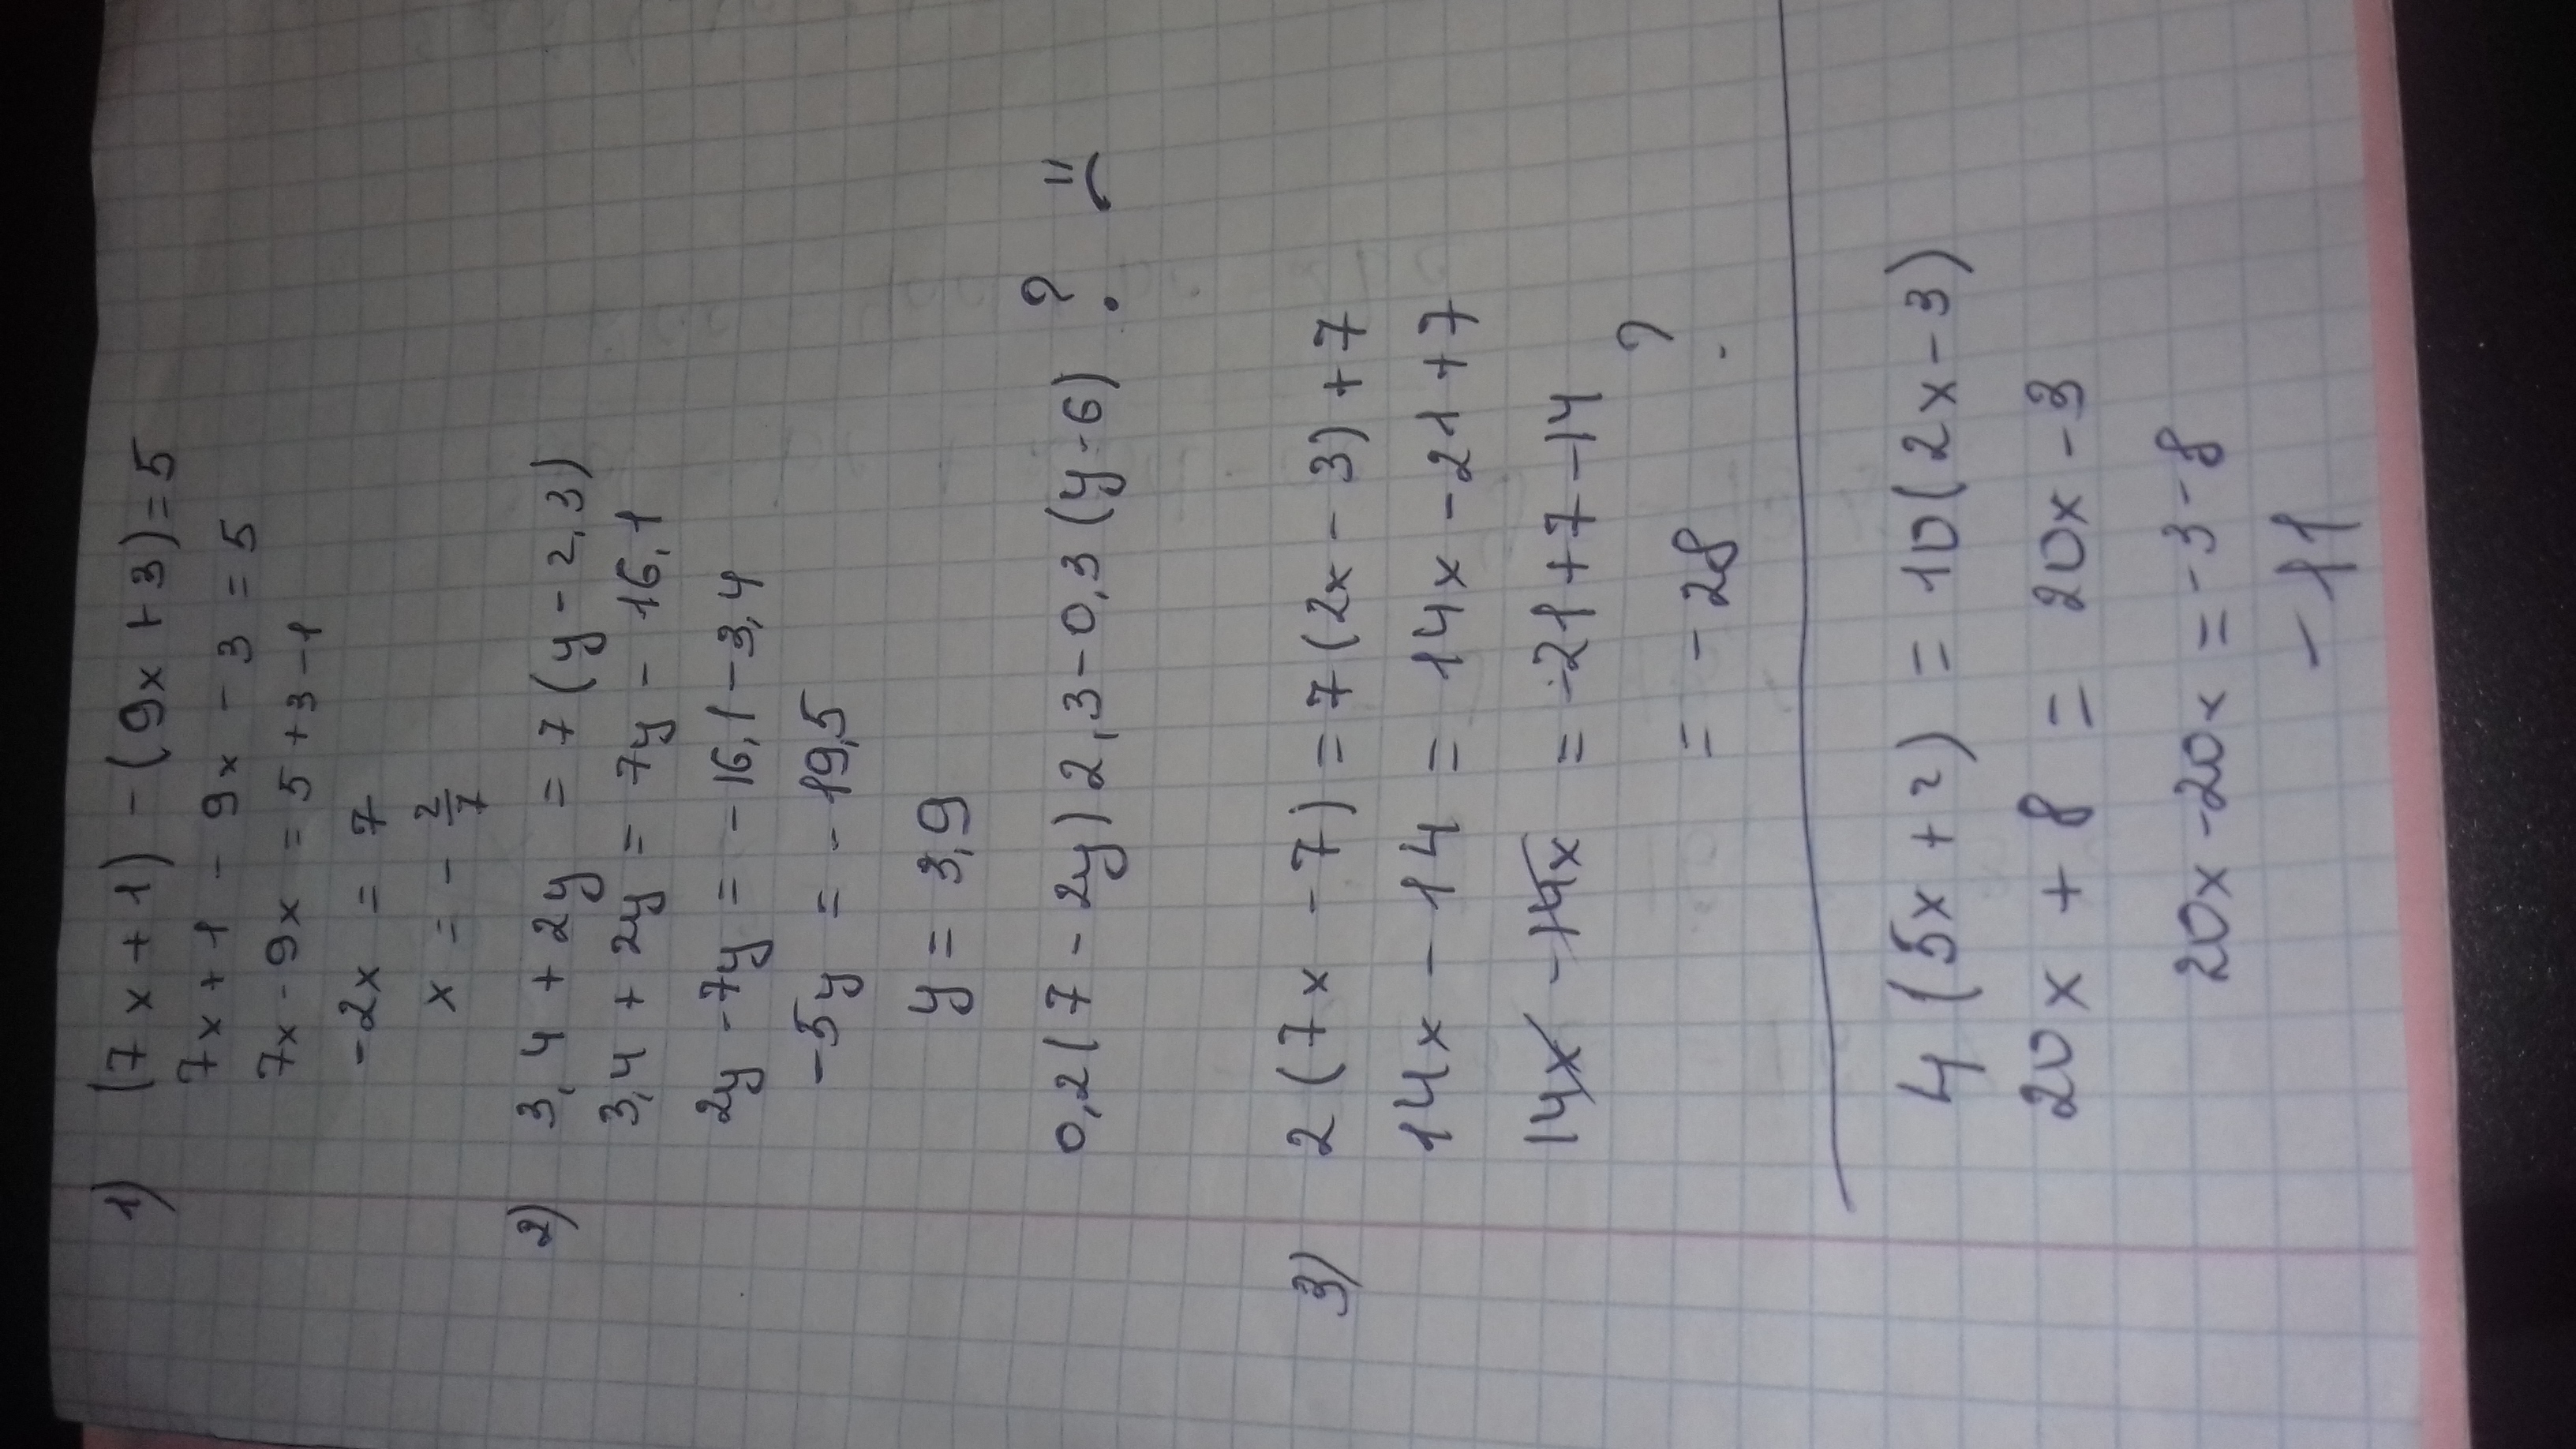 1) (7x+1)-(9x+3)=5
7x+1-9x-3=5
7x-9x=5+3-1
-2x=7
x=-2/7
2) 3,4+2y=7(y-2,3)
3,4+2y=7y-16,1
2y-7y=-16,1-3,4
-5y=-19,5
y=3,9
0,2(7-2y)2,3-0,3(y-6) ?
3) 2(7x-7)=7(2x-3)+7
14x-14=14x-21+7
14x-14x=-21+7-14
=-28 ?
4(5x+2)=10(2x-3)
20x+8=20x-3
20x-20x=-3-8
-11